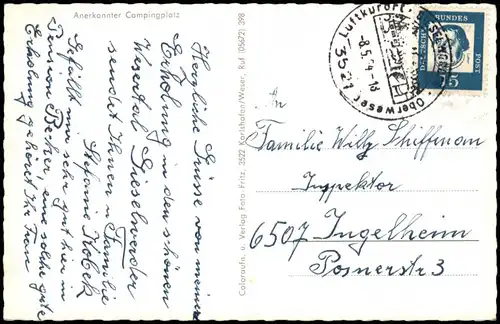 Anerkannter Campingplatz
Herzliche Grüsse von meiner
Erholung in den schönen
Wesertal Gieselwerder
sendet Ihnen u. Familie
Stefanie Kobek
Gefällt mir sehr gut hier in
Pension Becker, eine solche gute
Erholung gehöret Ihr Frau
Coloraufn. u. Verlag Foto Fritz, 3522 Karlshafen/Weser, Ruf (05672) 398
Luftkurort
3521
-8.5.64-18
Oberweser
BUNDES
15
An
Familie Willy Schiffman
Inspektor
6507 Ingelheim
Posnerstr 3